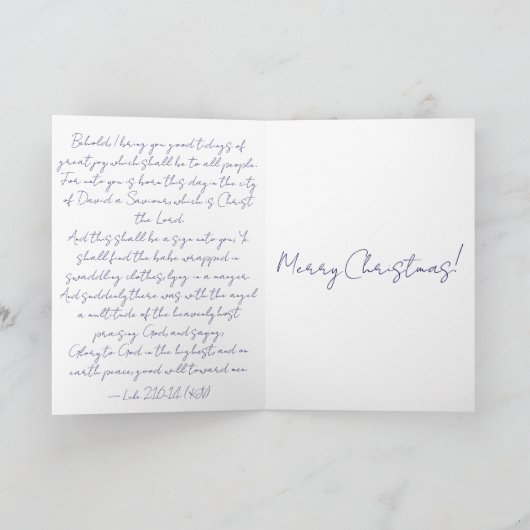 Behold, I bring you good tidings of
great joy, which shall be to all people.
For unto you is born this day in the city
of David a Saviour, which is Christ
the Lord.
And this shall be a sign unto you; Ye
shall find the babe wrapped in
swaddling clothes, lying in a manger.
And suddenly there was with the angel
a multitude of the heavenly host
praising God, and saying,
Glory to God in the highest, and on
earth peace, good will toward men.
— Luke 2:10-14 (KJV)
Merry Christmas!